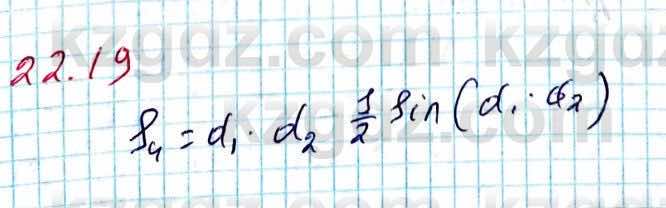 kzgdz.com kzgdz.com
22.19
S₄ = d₁ · d₂ 1/2 sin(d₁ · d₂)